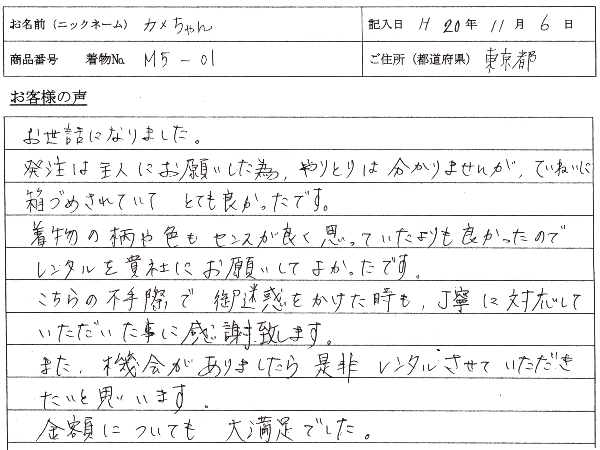 お名前(ニックネーム) カメちゃん 記入日 H 20年 11月 6日
商品番号 着物No. M5-01 ご住所(都道府県) 東京都
お客様の声
お世話になりました。
発注は主人にお願いした為、やりとりは分かりませんが、ていねいに
箱づめされていて とても良かったです。
着物の柄や色もセンスが良く思っていたよりも良かったので
レンタルを貴社にお願いしてよかったです。
こちらの不手際で御迷惑をかけた時も、丁寧に対応して
いただいた事に感謝致します。
また、機会がありましたら是非 レンタルさせていただき
たいと思います。
金額についても 大満足でした。